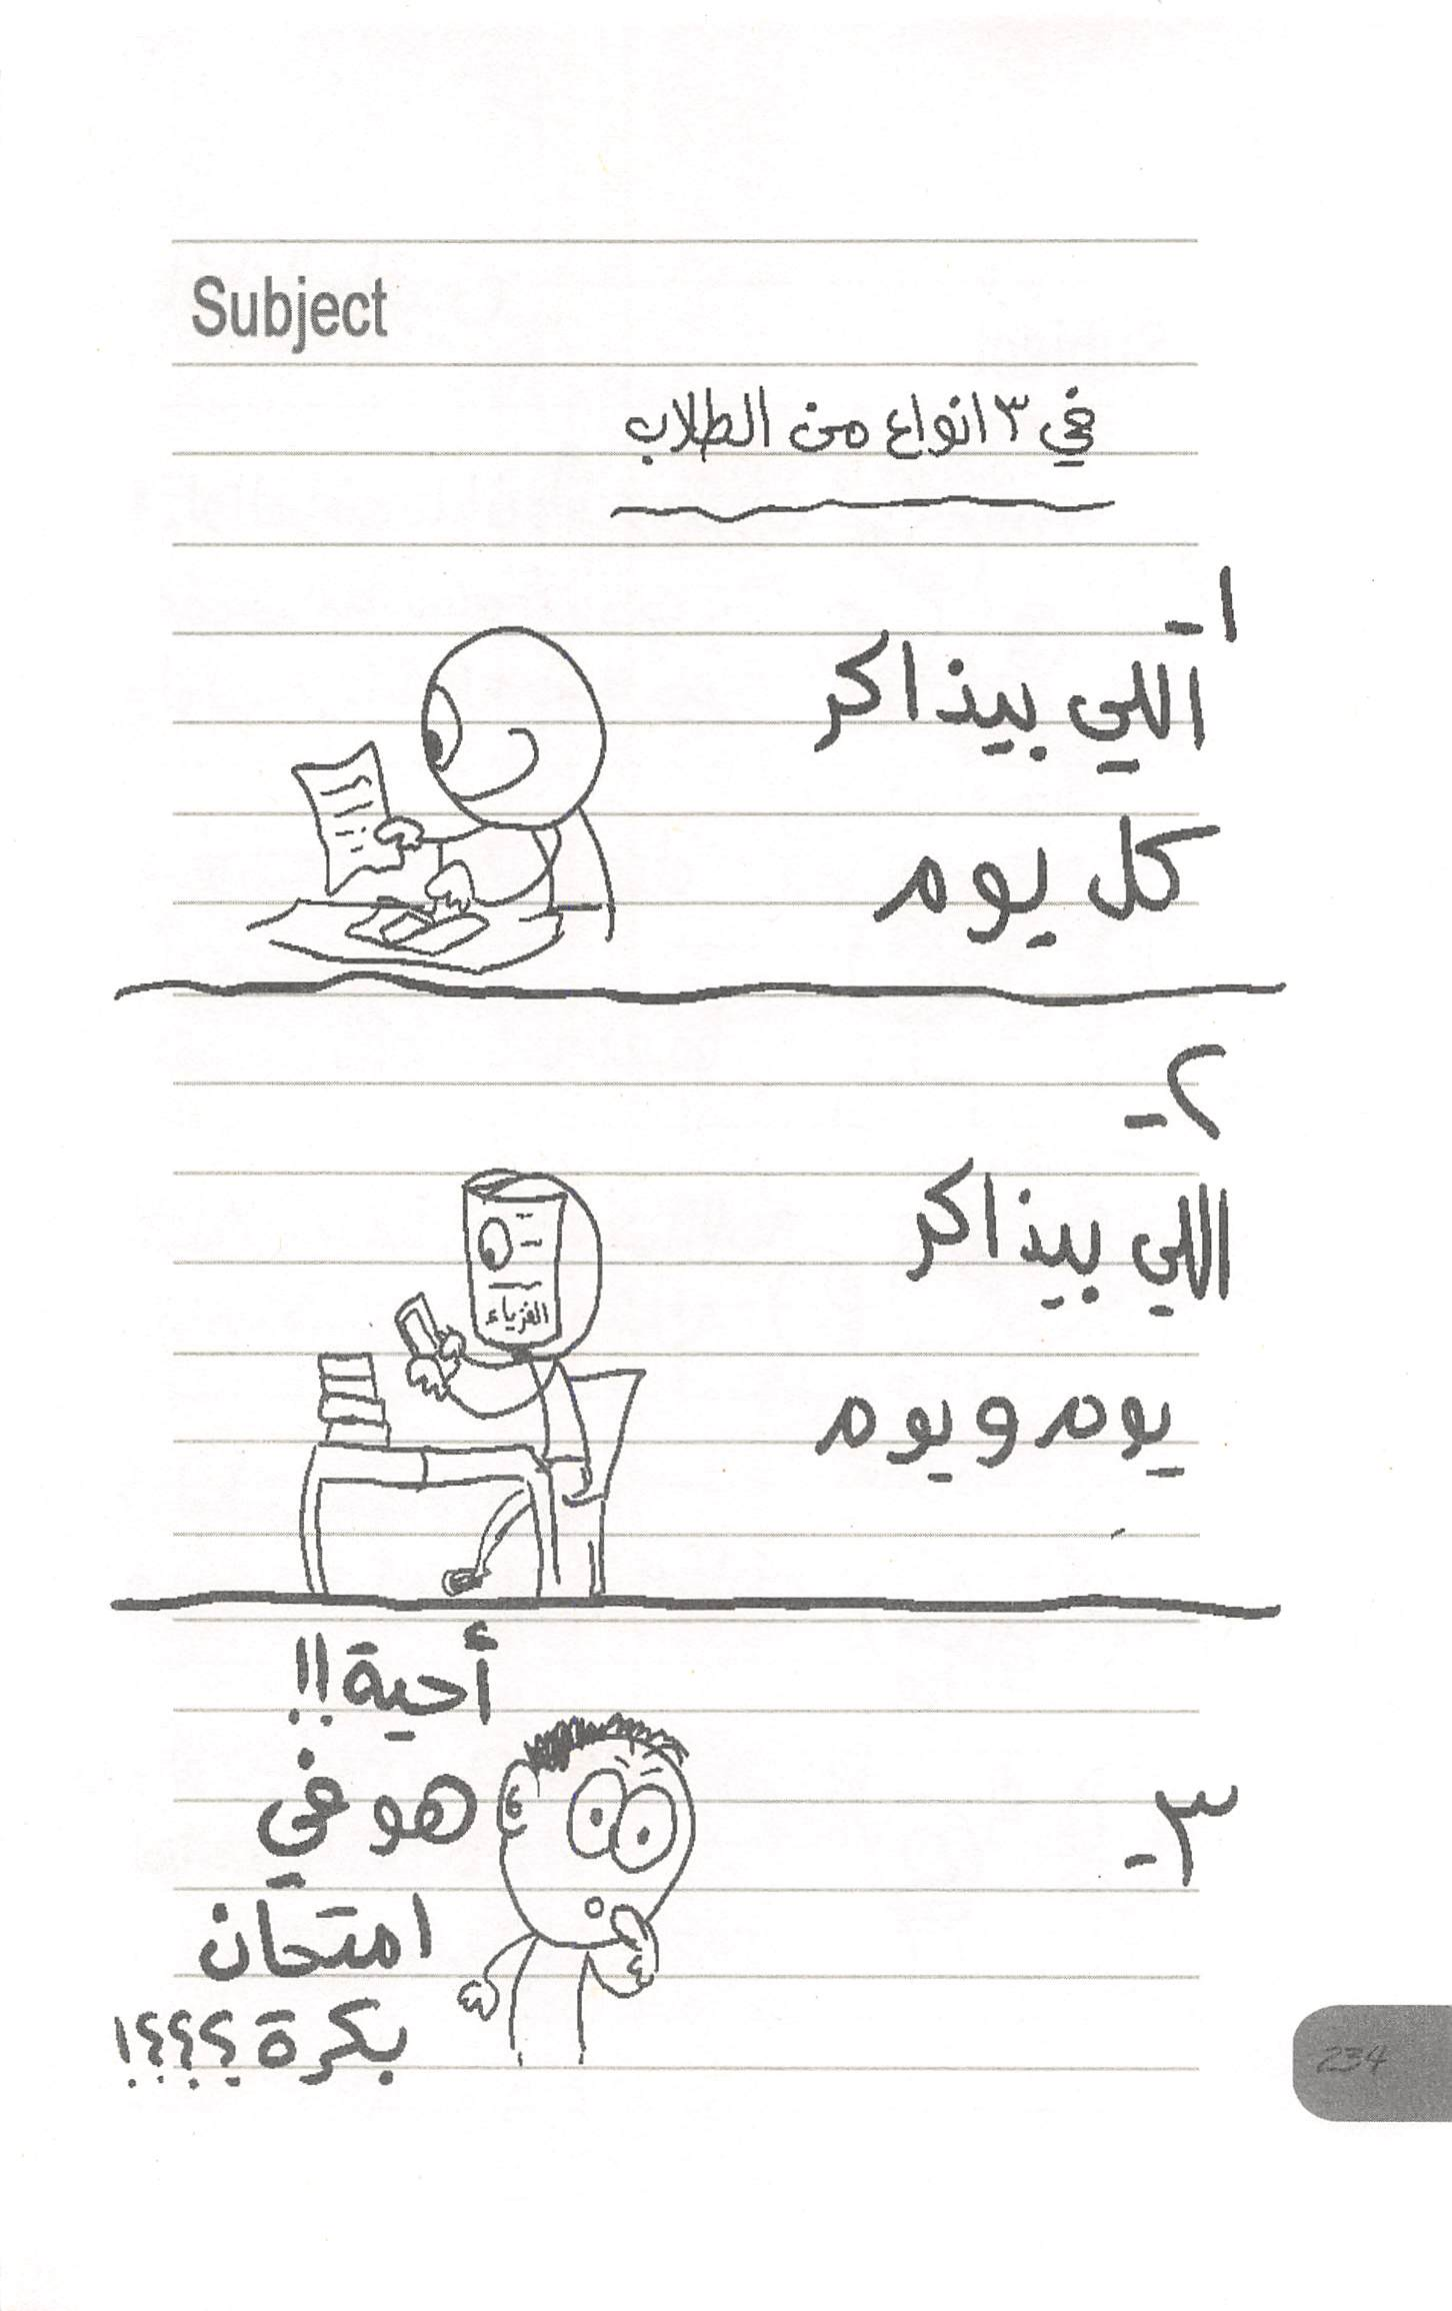 Subject
في ٣ انواع من الطلاب
١-
اللي بيذاكر
كل يوم
٢-
اللي بيذاكر
يوم ويوم
الفزياء
٣-
أحية!!
هو في
امتحان
بكرة؟؟؟؟!
234